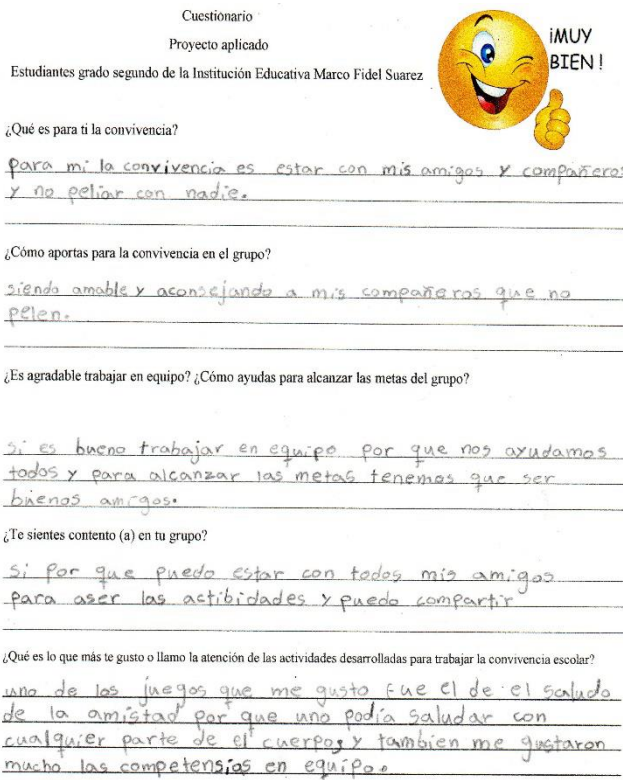 Cuestionario
Proyecto aplicado
Estudiantes grado segundo de la Institución Educativa Marco Fidel Suarez
¡MUY
BIEN!
¿Qué es para ti la convivencia?
para mi la convivencia es estar con mis amigos y compañeros
y no peliar con nadie.
¿Cómo aportas para la convivencia en el grupo?
siendo amable y aconsejando a mis compañeros que no
pelen.
¿Es agradable trabajar en equipo? ¿Cómo ayudas para alcanzar las metas del grupo?
si es bueno trabajar en equipo por que nos ayudamos
todos y para alcanzar las metas tenemos que ser
buenos amigos.
¿Te sientes contento (a) en tu grupo?
si por que puedo estar con todos mis amigos
para aser las actibidades y puedo compartir
¿Qué es lo que más te gusto o llamo la atención de las actividades desarrolladas para trabajar la convivencia escolar?
uno de los juegos que me gusto fue el de el saludo
de la amistad por que uno podia saludar con
cualquier parte de el cuerpo, y tambien me gustaron
mucho las competensias en equipo.